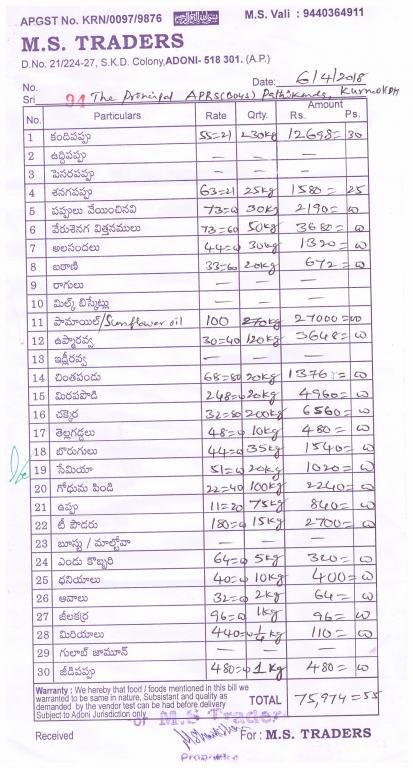 APGST No. KRN/0097/9876 M.S. Vali : 9440364911
M.S. TRADERS
D.No. 21/224-27, S.K.D. Colony, ADONI- 518 301. (A.P.)
No. 91 Date: 6/4/2018
Sri The Principal APRS(Boys) Pathikonda, Kurnool
No. Particulars Rate Qrty. Amount
Rs. Ps.
1 కందిపప్పు 55=21 230kg 12698=30
2 ఉద్దిపప్పు — — —
3 పెసరపప్పు — — —
4 శనగపప్పు 63=21 25kg 1580=25
5 పప్పులు వేయించినవి 73=ω 30kg 2190=ω
6 వేరుశెనగ విత్తనములు 73=60 50kg 3680=ω
7 అలసందలు 44=ω 30kg 1320=ω
8 బఠాణి 33=60 20kg 672=ω
9 రాగులు — — —
10 మిల్క్ బిస్కెట్లు — — —
11 పామాయిల్/Sunflower oil 100 270kg 27000=00
12 ఉప్మారవ్వ 30=40 120kg 3648=ω
13 ఇడ్లీరవ్వ — — —
14 చింతపండు 68=80 20kg 1376=ω
15 మిరపపొడి 248=ω 20kg 4960=ω
16 చక్కెర 32=80 200kg 6560=ω
17 తెల్లగడ్డలు 48=ω 10kg 480=ω
18 బొరుగులు 44=ω 35kg 1540=ω
19 సేమియా 51=ω 20kg 1020=ω
20 గోధుమ పిండి 22=40 100kg 2240=ω
21 ఉప్పు 11=20 75kg 840=ω
22 టీ పౌడరు 180=ω 15kg 2700=ω
23 బూస్టు / మాల్టోవా — — —
24 ఎండు కొబ్బరి 64=ω 5kg 320=ω
25 ధనియాలు 40=ω 10kg 400=ω
26 ఆవాలు 32=ω 2kg 64=ω
27 జీలకర్ర 96=ω 1kg 96=ω
28 మిరియాలు 440=ω 1/4kg 110=ω
29 గులాబ్ జామూన్ — — —
30 జీడిపప్పు 480=ω 1kg 480=ω
Warranty : We hereby that food / foods mentioned in this bill we
warranted to be same in nature, Subsistant and quality as
demanded by the vendor test can be had before delivery
Subject to Adoni Jurisdiction only
TOTAL 75,974=55
For M.S Traders
Received For : M.S. TRADERS